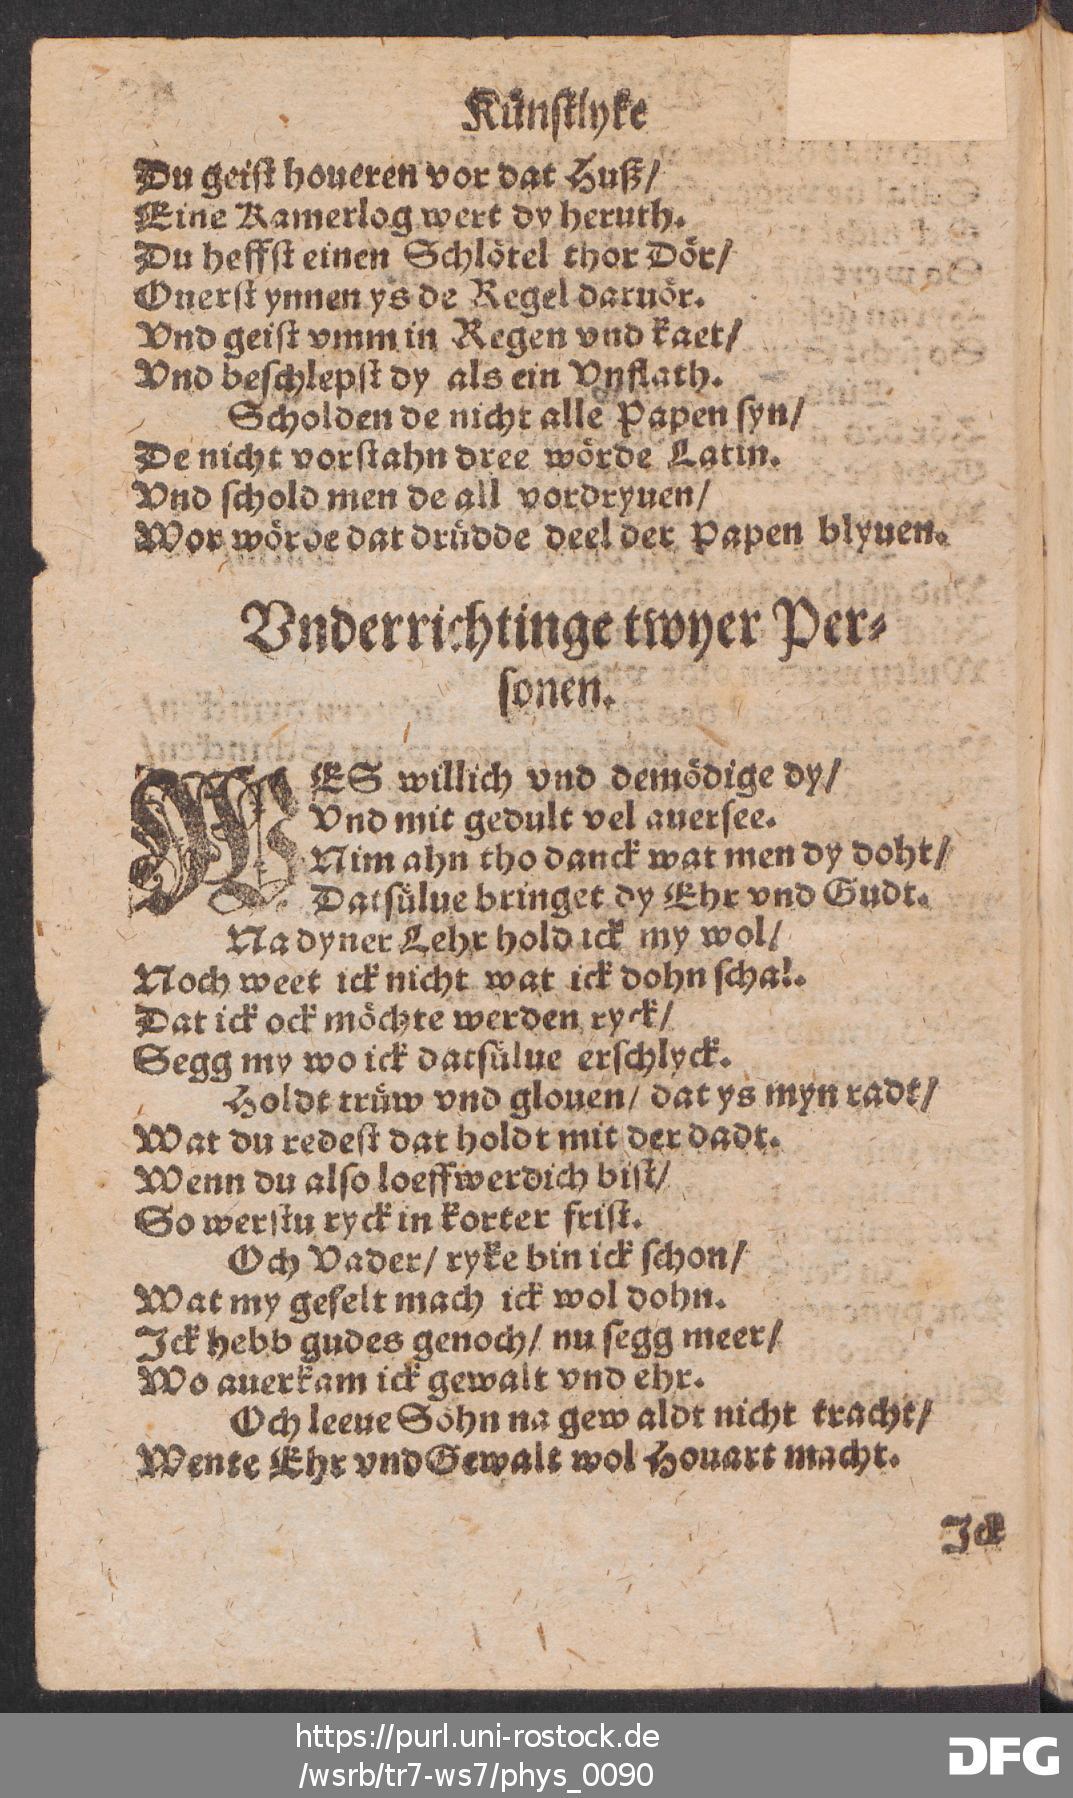 Künstlyke
Du geist houeren vor dat Huß/
Eine Kamerlog wert dy heruth.
Du heffst einen Schlötel thor Dör/
Ouerst ynnen ys de Regel daruör.
Vnd geist vmm in Regen vnd kaet/
Vnd beschlepst dy als ein Vnflath.
Scholden de nicht alle Papen syn/
De nicht vorstahn dree wörde Latin.
Vnd schold men de all vordryuen/
Wor wörde dat drüdde deel der Papen blyuen.
Vnderrichtinge twyer Per-
sonen.
WES willich vnd demödige dy/
Vnd mit gedult vel auersee.
Nim ahn tho danck wat men dy doht/
Datsülue bringet dy Ehr vnd Gudt.
Na dyner Lehr hold ick my wol/
Noch weet ick nicht wat ick dohn schal.
Dat ick ock möchte werden ryck/
Segg my wo ick datsülue erschlyck.
Holdt trüw vnd glouen/ dat ys myn radt/
Wat du redest dat holdt mit der dadt.
Wenn du also loeffwerdich bist/
So werstu ryck in korter frist.
Och Vader/ ryke bin ick schon/
Wat my gefelt mach ick wol dohn.
Ick hebb gudes genoch/ nu segg meer/
Wo auerkam ick gewalt vnd ehr.
Och leeue Söhn na gewaldt nicht tracht/
Wente Ehr vnd Gewalt wol Houart macht.
Ick
https://purl.uni-rostock.de
/wsrb/tr7-ws7/phys_0090
DFG